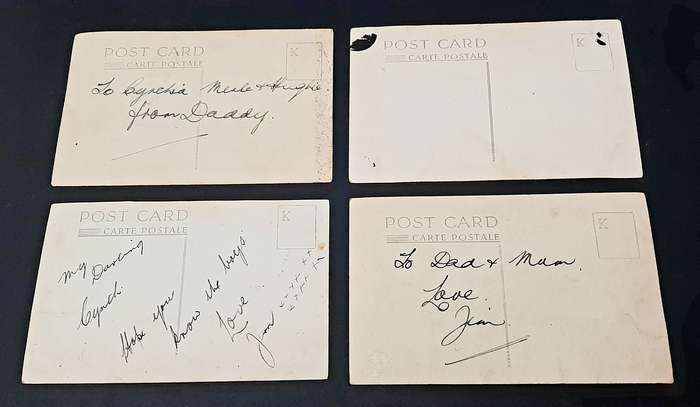 POST CARD
K
CARTE POSTALE
To Cynthia Merle & Hughie.
from Daddy.
POST CARD
K
CARTE POSTALE
POST CARD
K
CARTE POSTALE
My Darling
Cynth.
Hope you
know the boys.
Love
Jim xxxx xx
xxxx x
POST CARD
K
CARTE POSTALE
To Dad & Mum.
Love.
Jim.